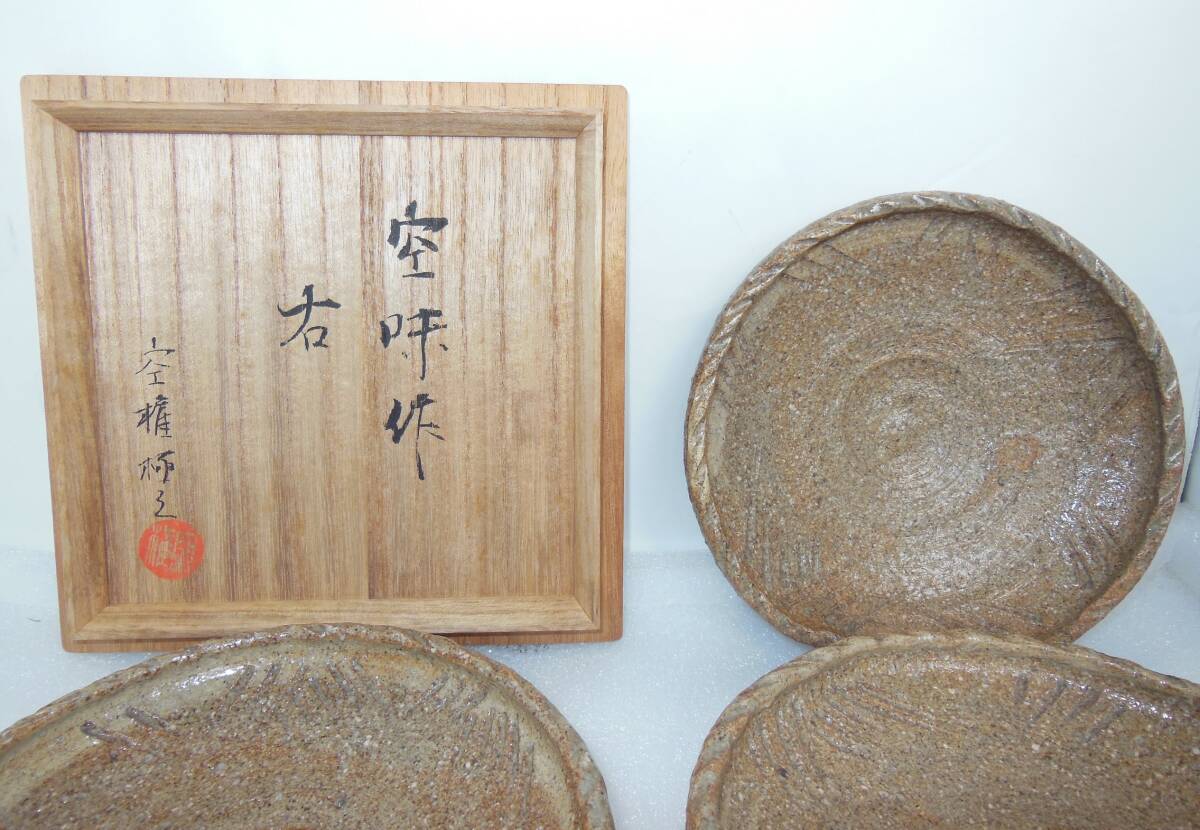 空味作
右
空権極之